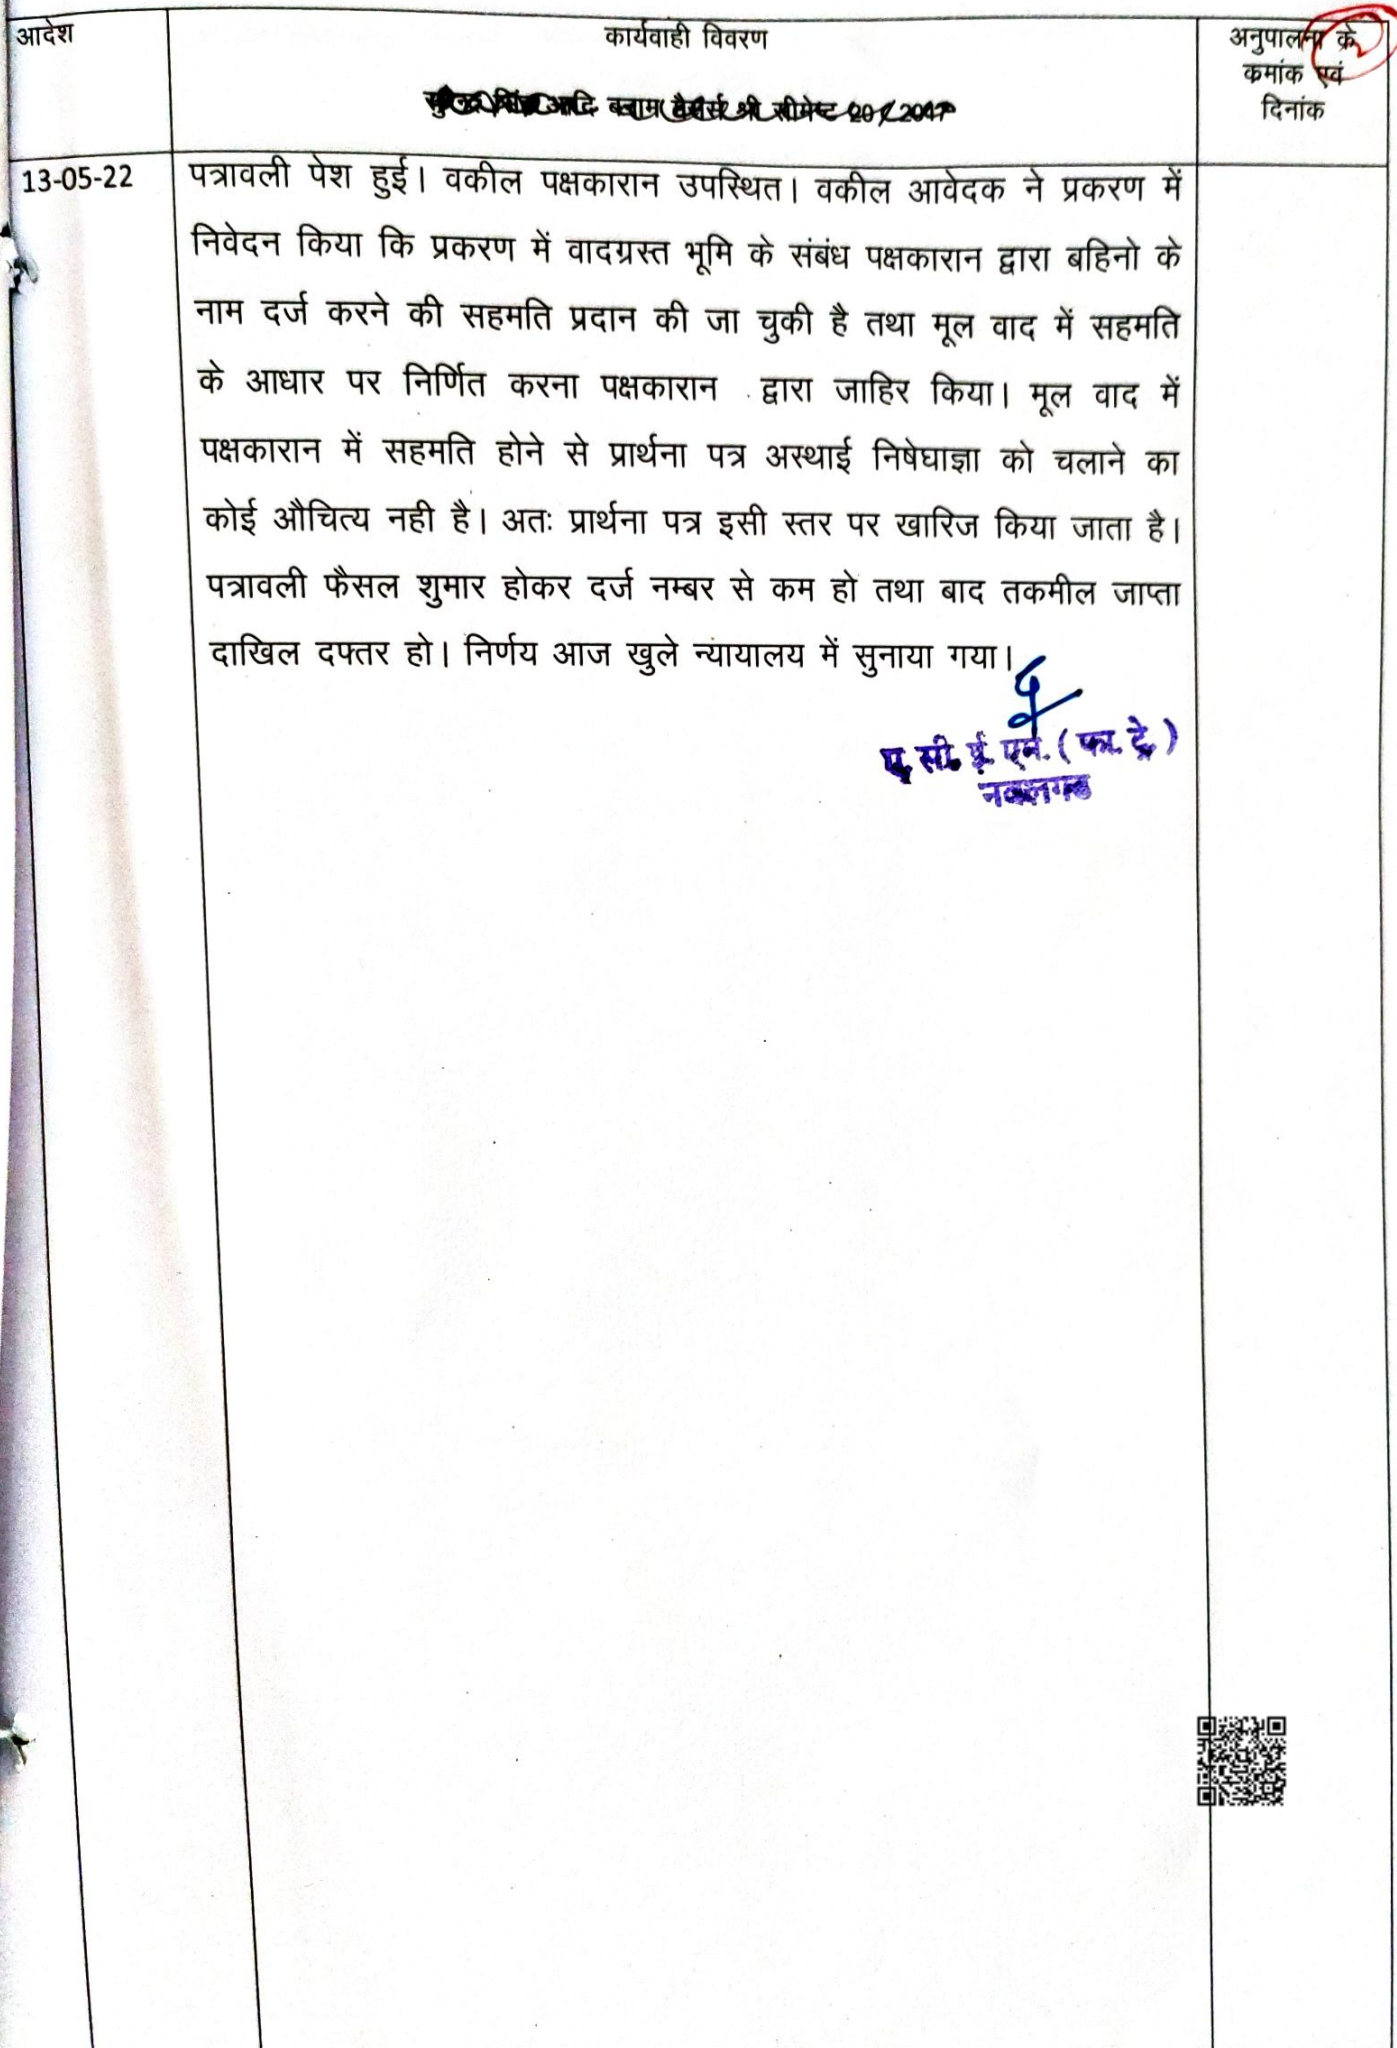 आदेश
कार्यवाही विवरण
अनुपालना के
क्रमांक एवं
दिनांक
आदि बनाम श्री सीमेन्ट 20/2017
13-05-22
पत्रावली पेश हुई। वकील पक्षकारान उपस्थित। वकील आवेदक ने प्रकरण में
निवेदन किया कि प्रकरण में वादग्रस्त भूमि के संबंध पक्षकारान द्वारा बहिनो के
नाम दर्ज करने की सहमति प्रदान की जा चुकी है तथा मूल वाद में सहमति
के आधार पर निर्णित करना पक्षकारान द्वारा जाहिर किया। मूल वाद में
पक्षकारान में सहमति होने से प्रार्थना पत्र अस्थाई निषेघाज्ञा को चलाने का
कोई औचित्य नही है। अतः प्रार्थना पत्र इसी स्तर पर खारिज किया जाता है।
पत्रावली फैसल शुमार होकर दर्ज नम्बर से कम हो तथा बाद तकमील जाप्ता
दाखिल दफ्तर हो। निर्णय आज खुले न्यायालय में सुनाया गया।
ए. सी. ई. एम. (फा. ट्रे.)
नवलगढ